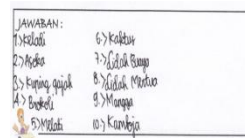 JAWABAN:
1.) Keladi
2.) Asoka
3.) Kuping gajah
4.) Brokoli
5.) Melati
6.) Kaktus
7.) Lidah Buaya
8.) Lidah Mertua
9.) Mangga
10.) Kamboja